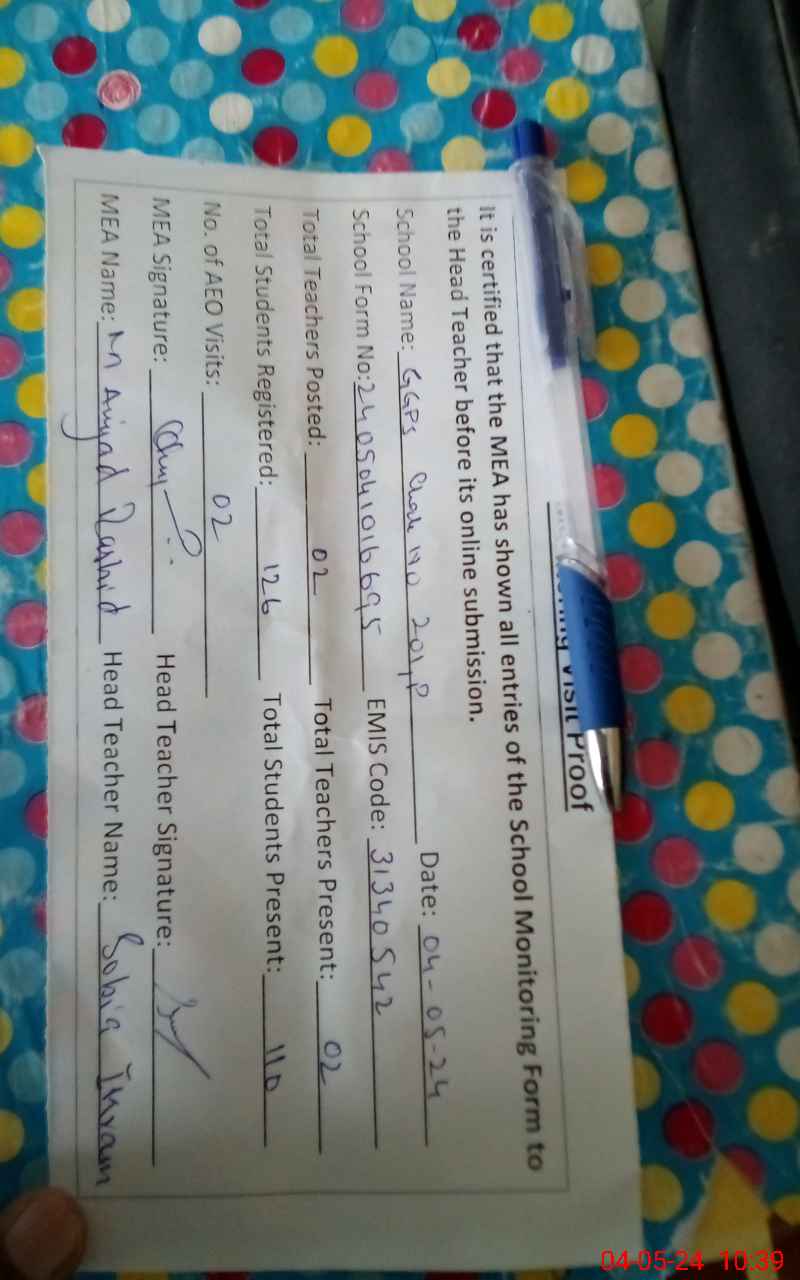 Visit Proof
It is certified that the MEA has shown all entries of the School Monitoring Form to
the Head Teacher before its online submission.
School Name: GGPS Chak no 201P Date: 04-05-24
School Form No: 2405041016695 EMIS Code: 31340542
Total Teachers Posted: 02 Total Teachers Present: 02
Total Students Registered: 126 Total Students Present: 110
No. of AEO Visits: 02
MEA Signature: Head Teacher Signature:
MEA Name: M Amjad Rashid Head Teacher Name: Sobia Imram
04-05-24 10:39